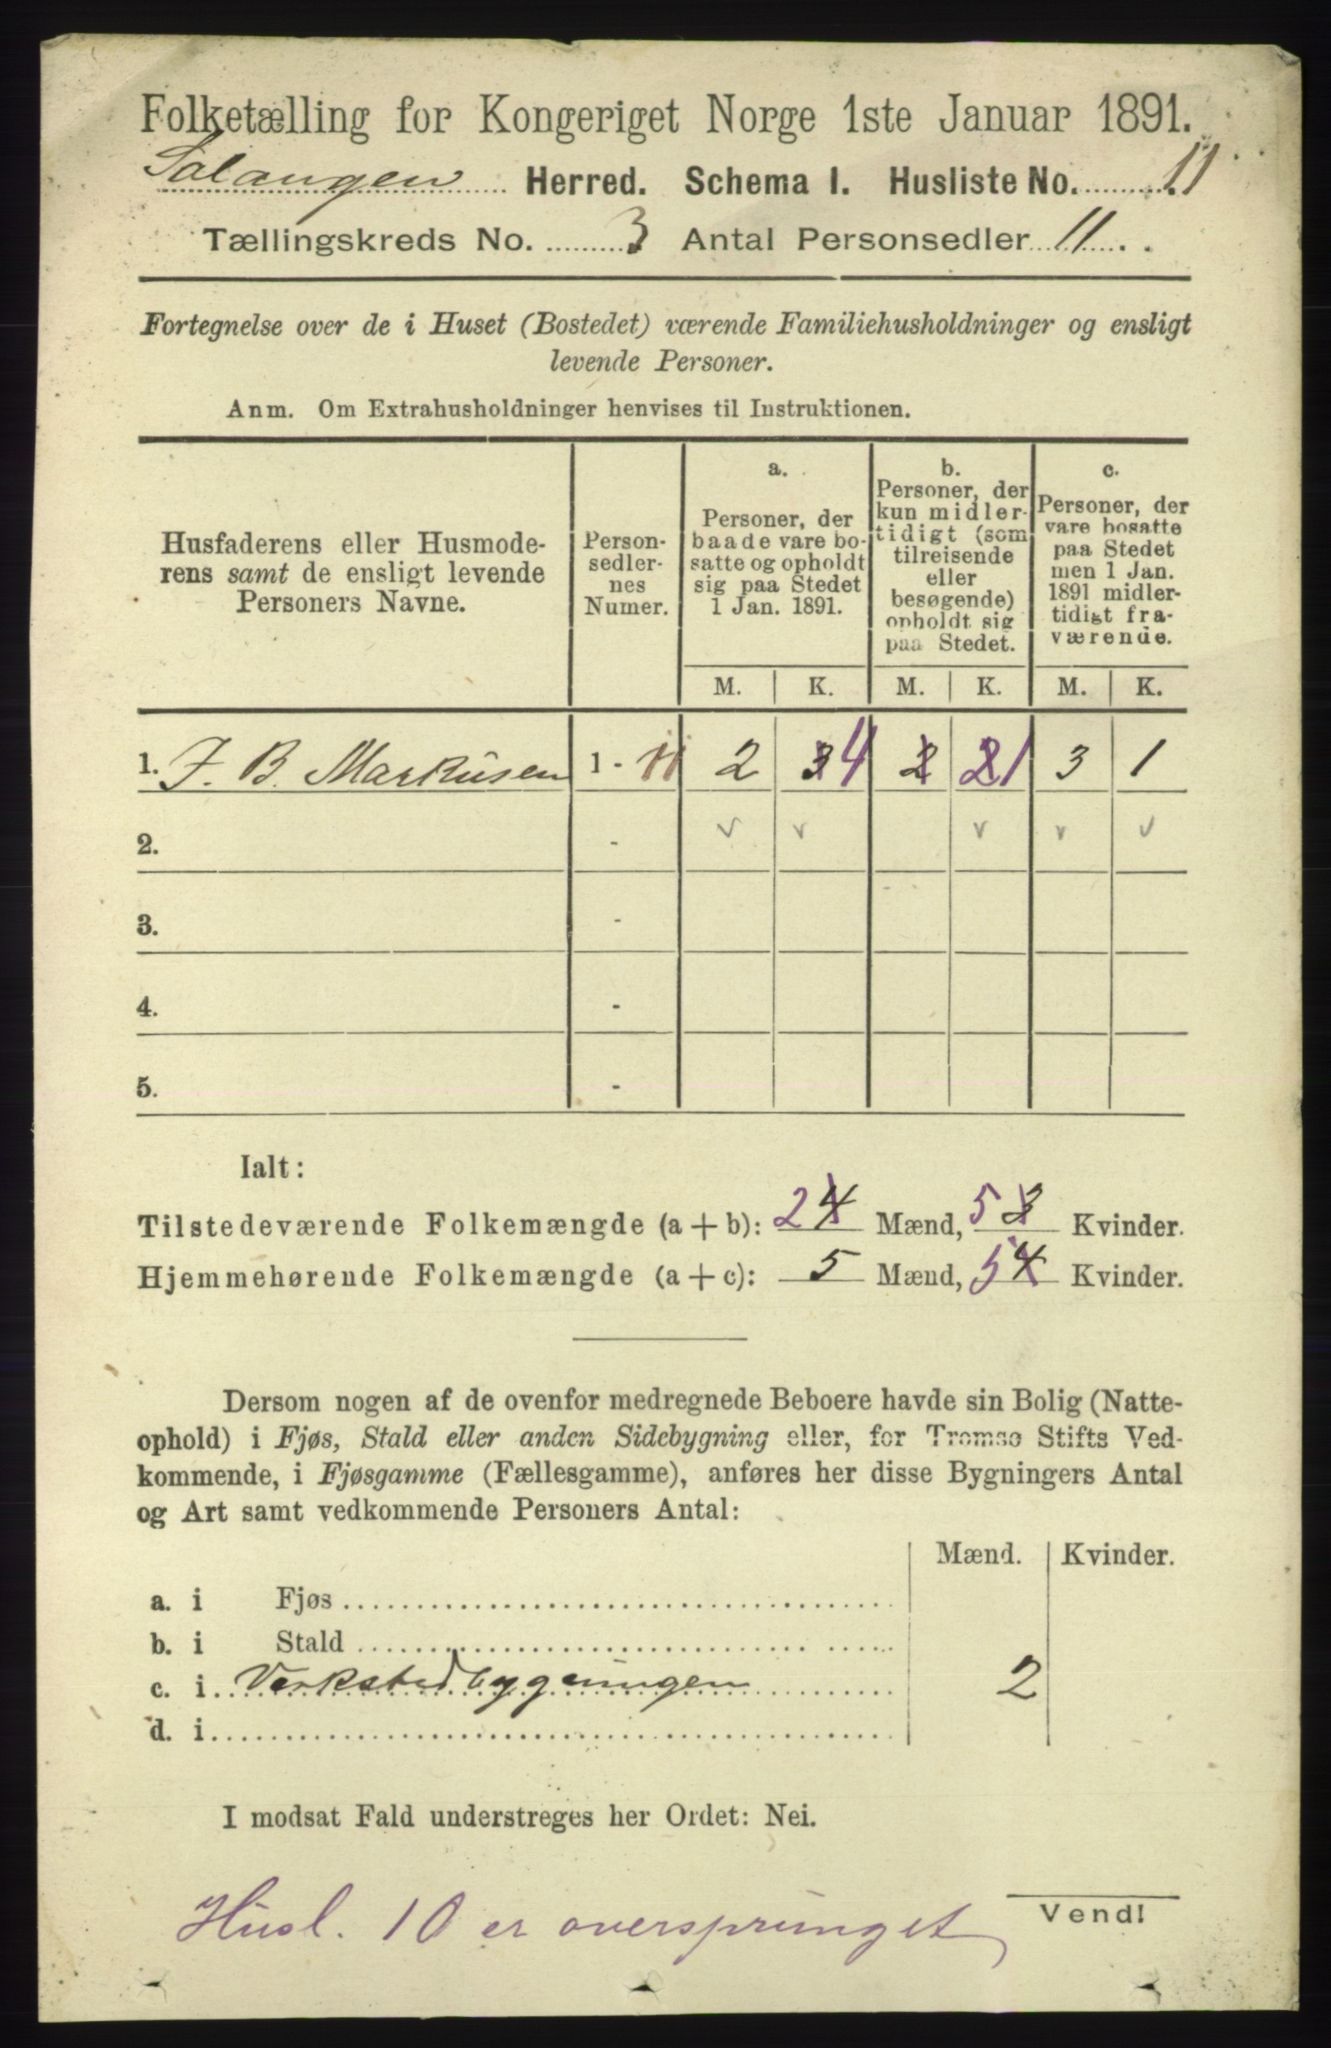 Folketælling for Kongeriget Norge 1ste Januar 1891.
Salangen Herred. Schema I. Husliste No. 11
Tællingskreds No. 3 Antal Personsedler 11
Fortegnelse over de i Huset (Bostedet) værende Familiehusholdninger og ensligt
levende Personer.
Anm. Om Extrahusholdninger henvises til Instruktionen.
Husfaderens eller Husmode-
rens samt de ensligt levende
Personers Navne.
Person-
sedler-
nes
Numer.
a.
Personer, der
baade vare bo-
satte og opholdt
sig paa Stedet
1 Jan. 1891.
b.
Personer, der
kun midler-
tidigt (som
tilreisende
eller
besøgende)
opholdt sig
paa Stedet.
c.
Personer, der
vare bosatte
paa Stedet
men 1 Jan.
1891 midler-
tidigt fra-
værende.
M. K. M. K. M. K.
1. J. B. Markusen 1 - 11 2 3 4 2 2 1 3 1
2. -
3. -
4. -
5. -
Ialt:
Tilstedeværende Folkemængde (a + b): 2 4 Mænd, 5 3 Kvinder.
Hjemmehørende Folkemængde (a + c): 5 Mænd, 5 4 Kvinder.
Dersom nogen af de ovenfor medregnede Beboere havde sin Bolig (Natte-
ophold) i Fjøs, Stald eller anden Sidebygning eller, for Tromsø Stifts Ved-
kommende, i Fjøsgamme (Fællesgamme), anføres her disse Bygningers Antal
og Art samt vedkommende Personers Antal:
Mænd. Kvinder.
a. i Fjøs
b. i Stald
c. i Verkstedbygningen 2
d. i
I modsat Fald understreges her Ordet: Nei.
Husl. 10 er oversprunget
Vend!